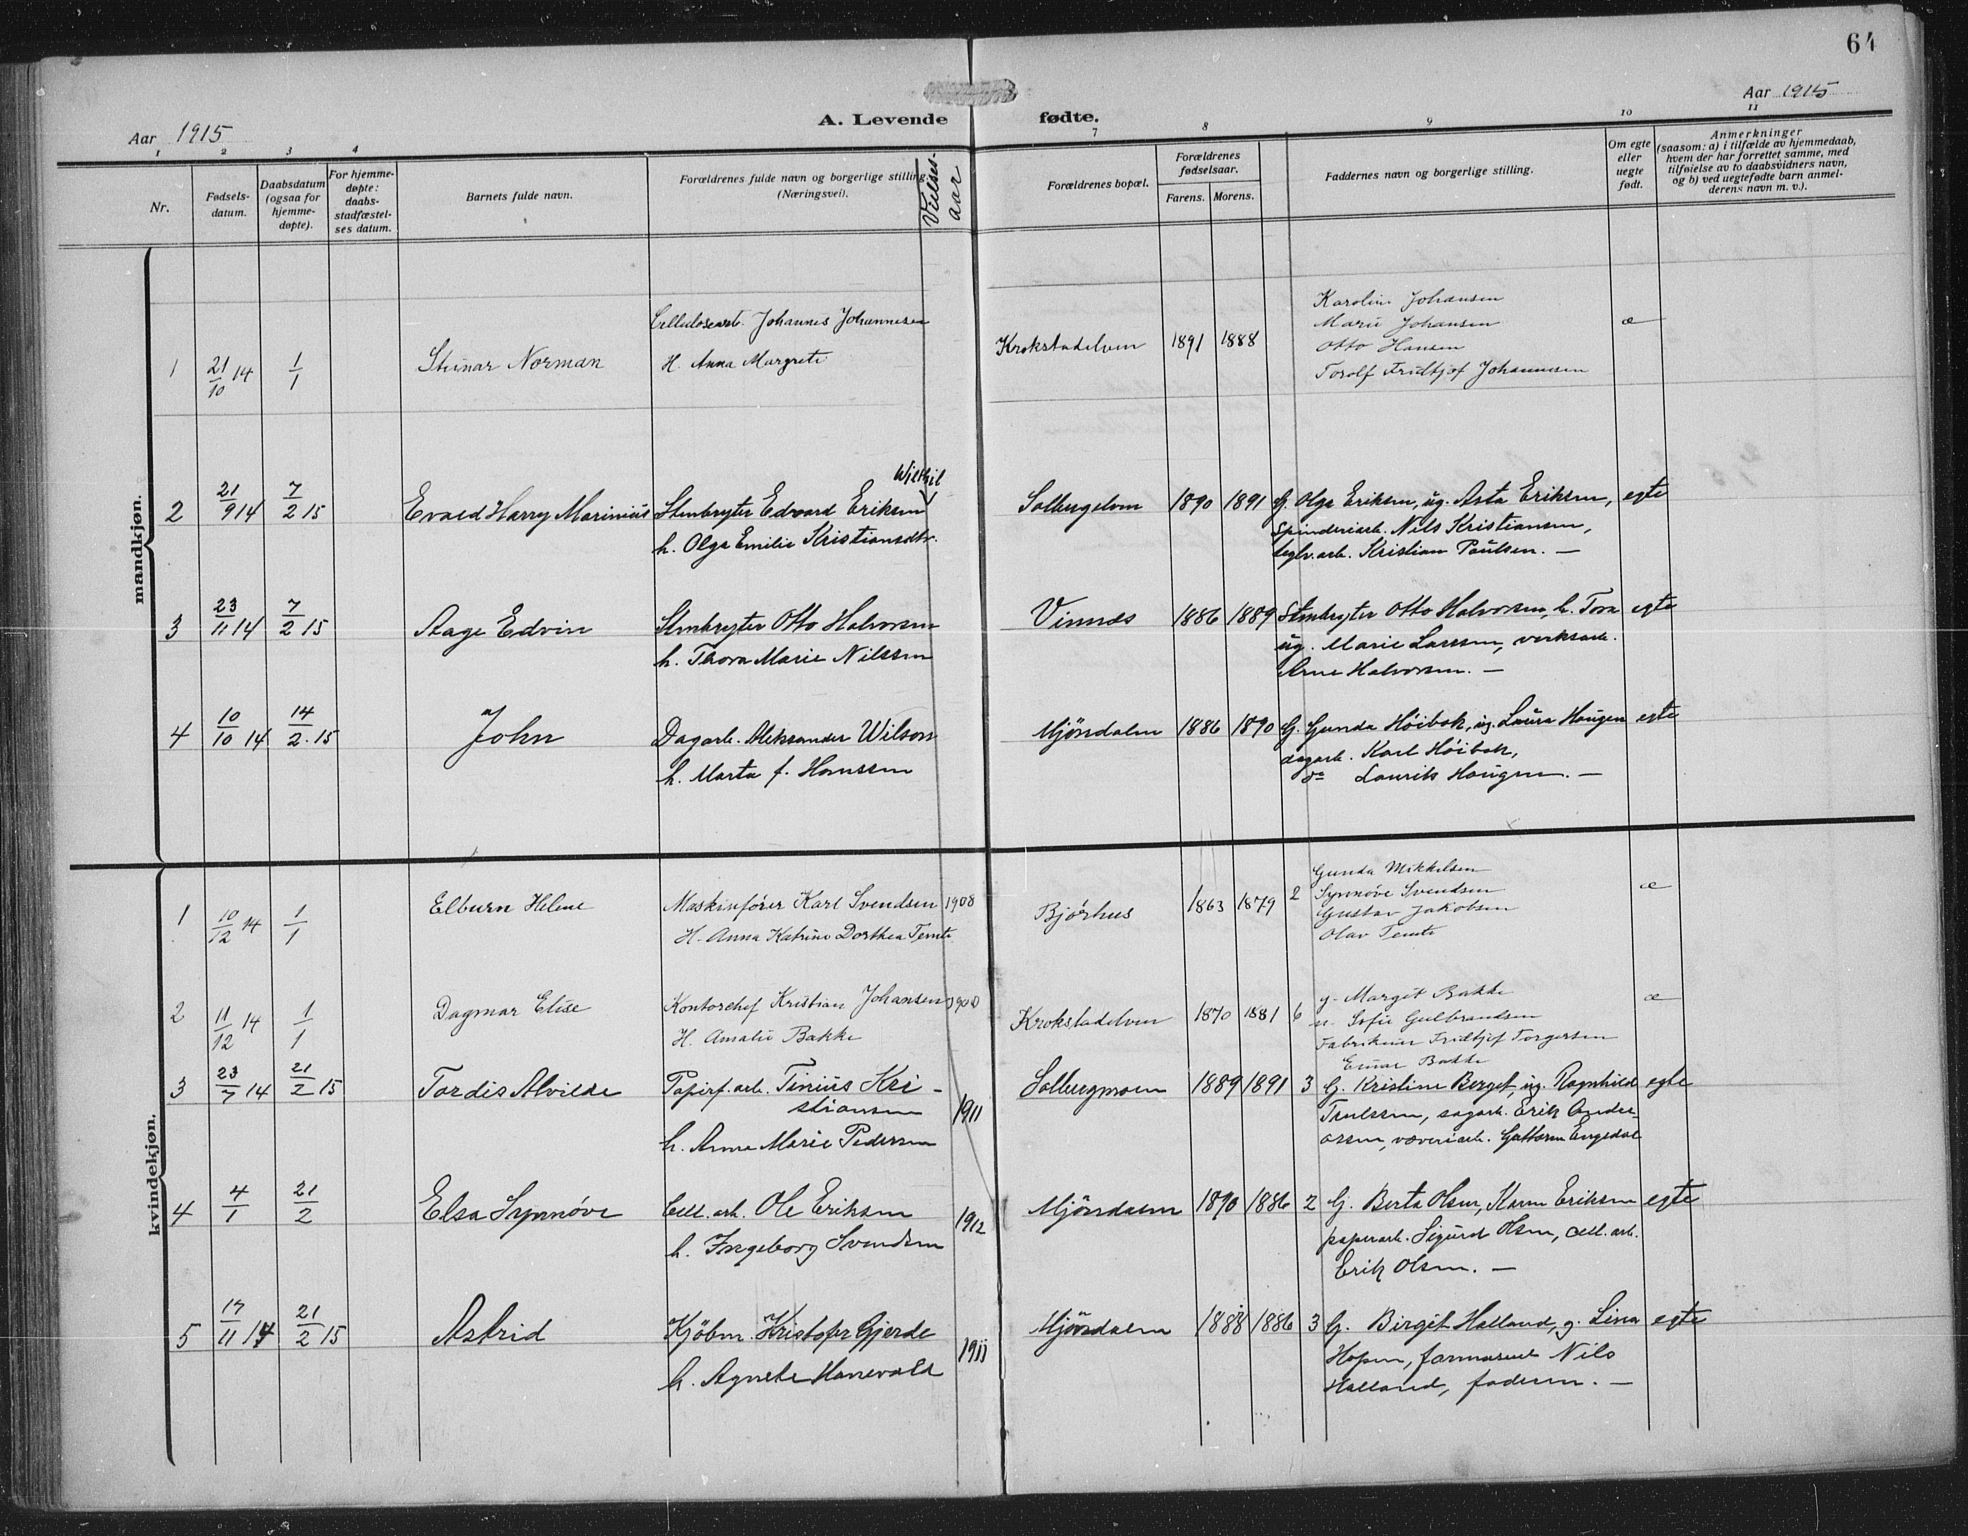 64
Aar 1915
A. Levende fødte.
Aar 1915
1 2 3 4 7 8 9 10 11
Nr.
Fødsels-
datum.
Daabsdatum
(ogsaa for
hjemme-
døpte).
For hjemme-
døpte:
daabs-
stadfæstel-
ses datum.
Barnets fulde navn.
Forældrenes fulde navn og borgerlige stilling
(Næringsvei).
Vielses-
aar
Forældrenes bopæl.
Forældrenes
fødselsaar.
Farens. Morens.
Faddernes navn og borgerlige stilling.
Om egte
eller
uegte
født.
Anmerkninger
(saasom: a) i tilfælde av hjemmedaab,
hvem der har forrettet samme, med
tilføielse av to daabsvidners navn,
og b) ved uegtefødte barn anmel-
derens navn m. v.).
mandkjøn.
1 21/10 14 1/1 Steinar Norman
Cellulosearb. Johannes Johannesen
H. Anna Margrete
Krokstadelven 1891 1888
Karoline Johansen
Marie Johansen
Otto Hansen
Torolf Fridtjof Johannesen
æ
2 21/9 14 7/2 15 Evald Harry Marinius
Stenbryter Edvard Eriksen
h. Olga Emilie Kristiansdtr.
Solbergelven 1890 1891
G. Olga Eriksen, ug. Asta Eriksen,
Spinderiarb. Nils Kristiansen,
teglv.arb. Kristian Paulsen. —
egte
3 23/11 14 7/2 15 Aage Edvin
Stenbryter Otto Halvorsen
h. Thora Marie Nilssen
Vinnæs 1886 1889
Stenbryter Otto Halvorsen, h. Tora
ug. Marie Larssen, verksarb.
Arne Halvorsen. —
egte
4 10/10 14 14/2 15 John
Dagarb. Aleksander Wilson
h. Marta f. Hanssen
Mjöndalen 1886 1890
G. Gunda Höibak, ug. Laura Haugen
dagarb. Karl Höibak,
do Laurits Haugen. —
egte
kvindekjøn.
1 10/12 14 1/1 Elburn Helene
Maskinfører Karl Svendsen 1908
H. Anna Katrine Dorthea Temte
Bjørhus 1863 1879 2
Gunda Mikkelsen
Synnøve Svendsen
Gustav Jakobsen
Olav Temte
æ
2 11/12 14 1/1 Dagmar Elise
Kontorchef Kristian Johansen 1900
H. Amalie Bakke
Krokstadelven 1870 1881 6
g. Margit Bakke
u. Sofie Gulbrandsen
Fabrikeier Fridtjof Torgersen
Einar Bakke
æ
3 23/7 14 21/2 15 Tordis Alvilde
Papirf.arb. Tinius Kri-
stiansen
h. Anna Marie Pedersen
1911
Solbergmoen 1889 1891 3
G. Kristine Berget, ug. Ragnhild
Trulssen, sagarb. Erik Ander-
ossen, væveriarb. Guttorm Engedal
egte
4 4/1 21/2 Elsa Synnöve
Cell. arb. Ole Eriksen
h. Ingeborg Svendsen
1912
Mjöndalen 1890 1886 2
G. Berta Olsen, Karen Eriksen
papirarb. Sigurd Olsen, cell. arb.
Erik Olsen. —
egte
5 17/11 14 21/2 15 Astrid
Kjöbm. Kristofer Gjerde
h. Agnete Hanevold
1911
Mjöndalen 1888 1886 3
G. Birgit Halland, g. Lina
Hopen, farmaseut Nils
Halland, faderen. —
egte